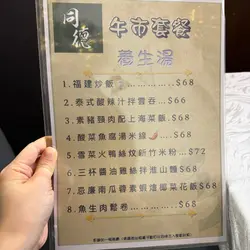 同德
午市套餐
養生湯
1.福建炒飯 ...$68
2.泰式酸辣汁拌雪吞 ...$66
3.素豬頸肉配上海菜飯 ...$68
4.酸菜魚腐湯米線 ...$68
5.雪菜火鴨絲炆新竹米粉 ...$72
6.三杯醬油雞絲拌進山麵 ...$68
7.忌廉南瓜蓉素蝦燴椰菜花飯 ...$68
8.魚生肉鬆卷 ...$68